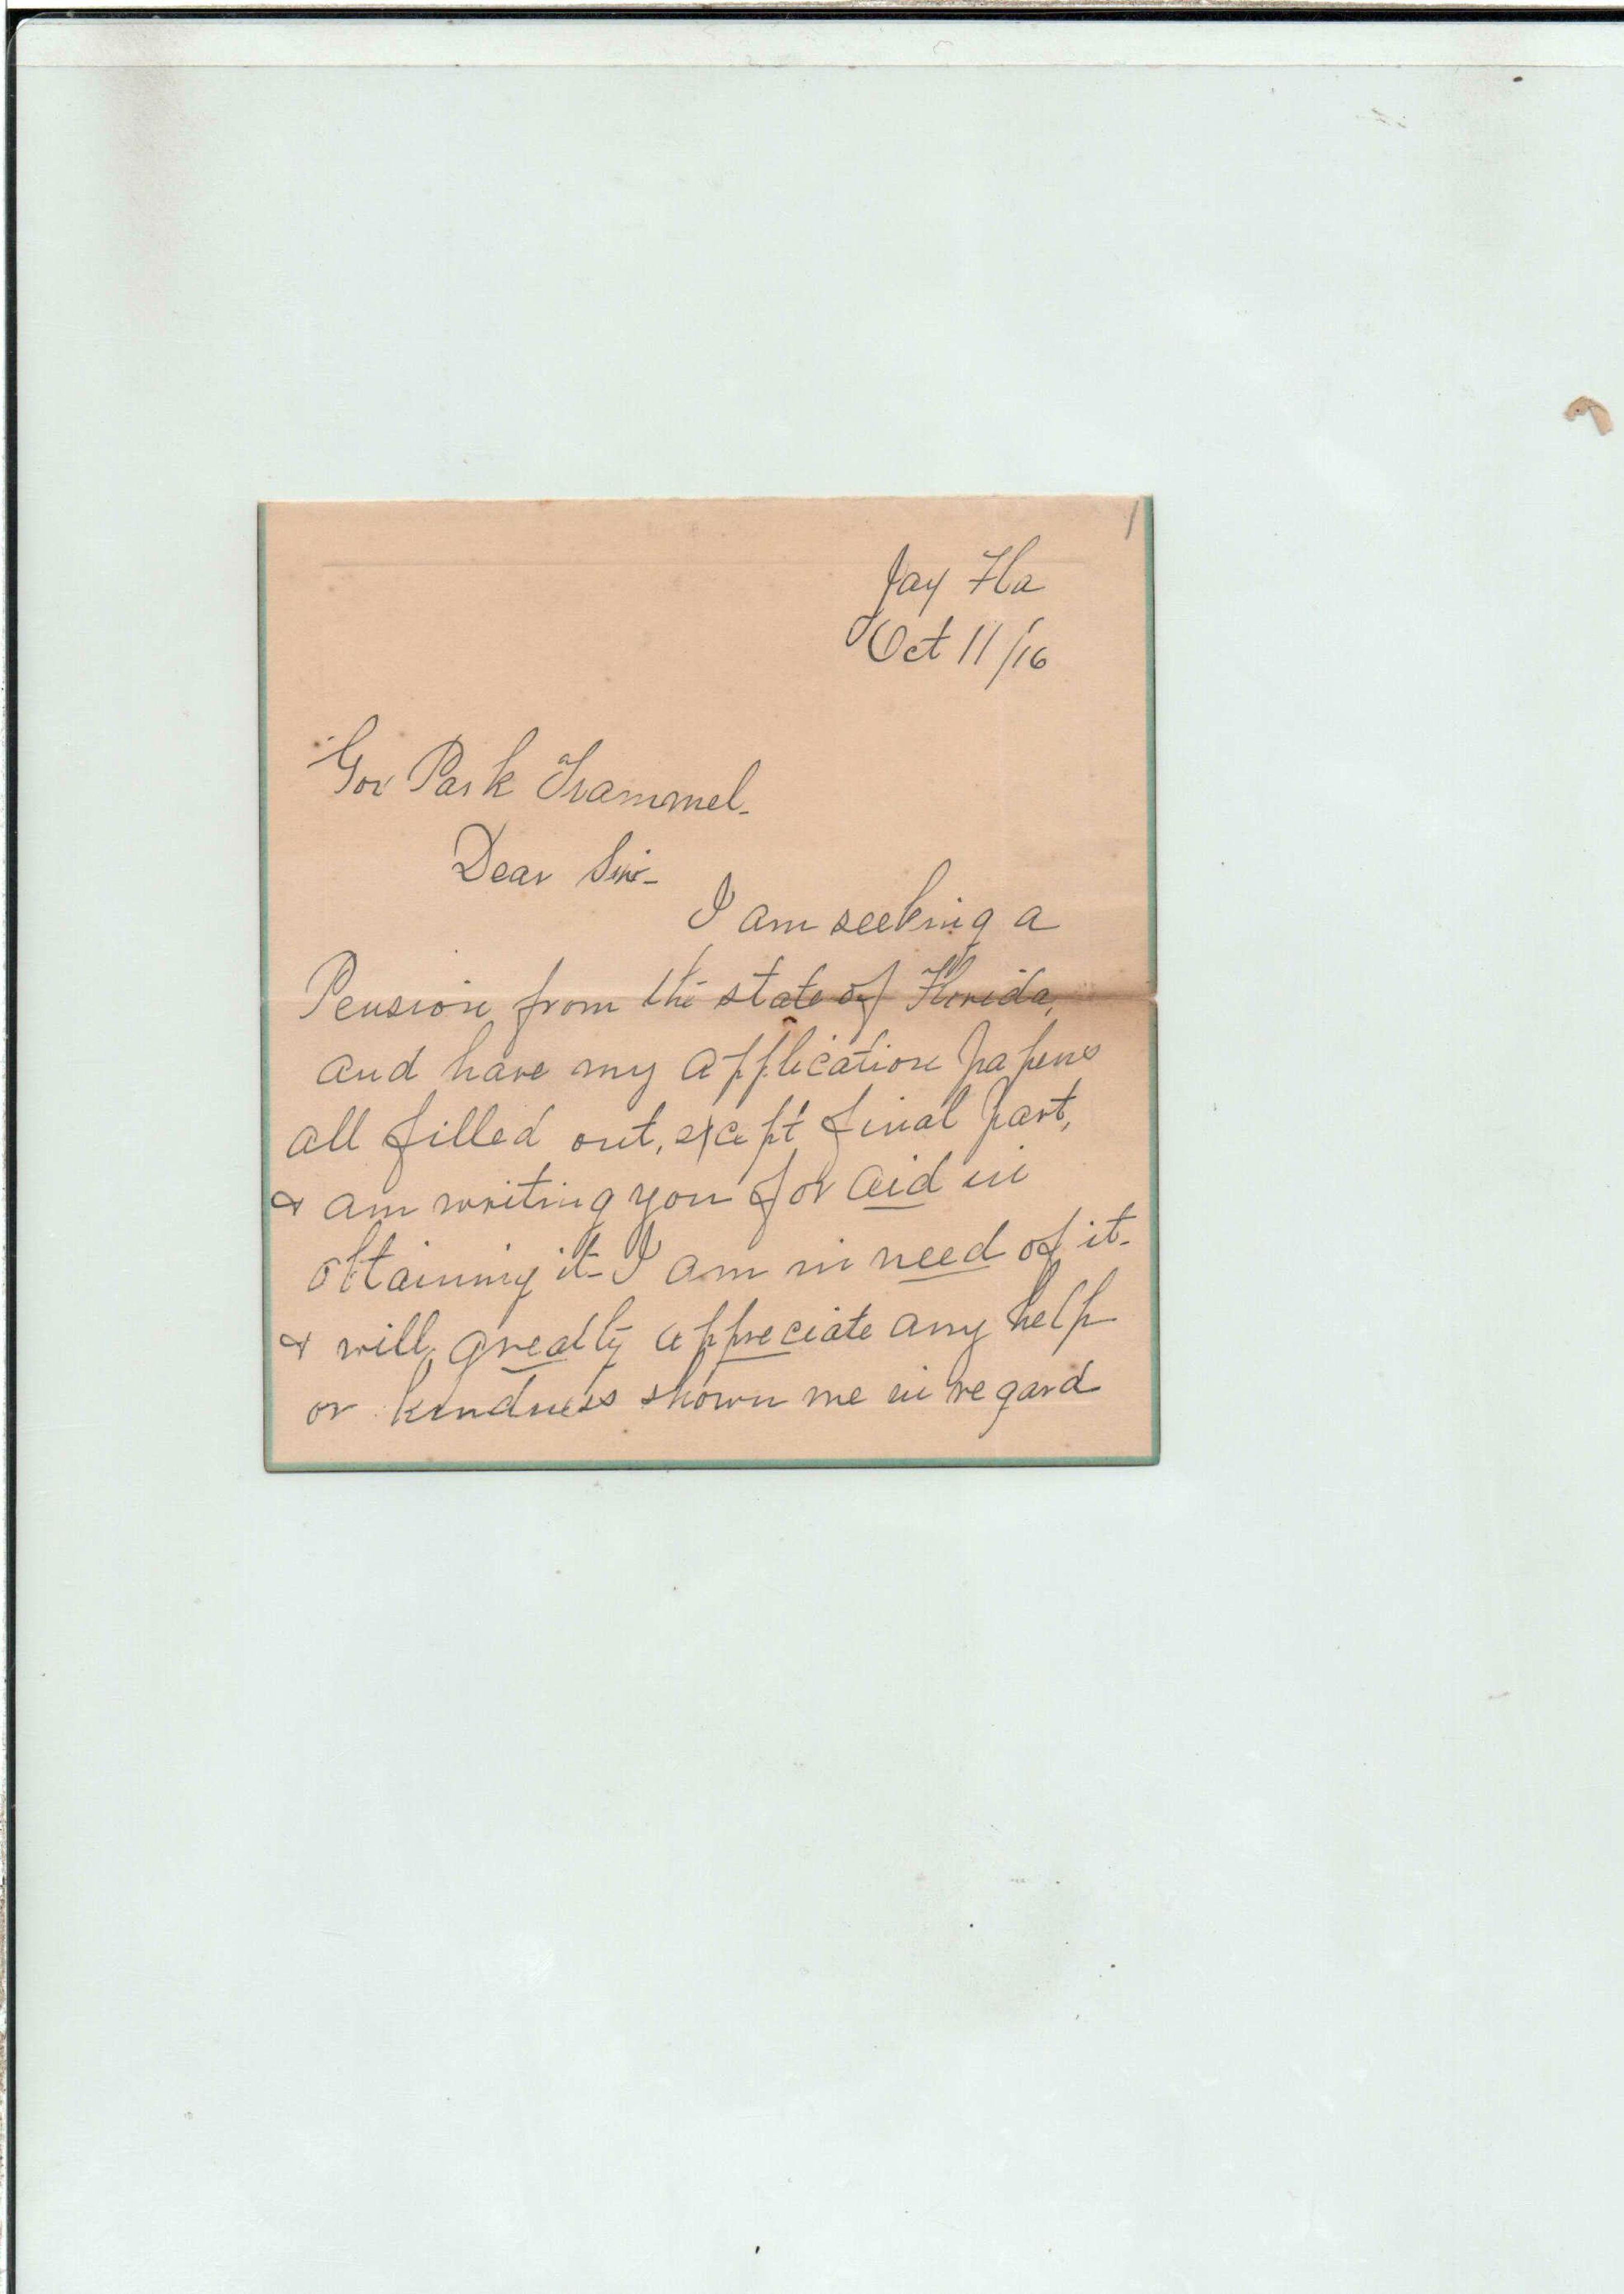 Jay Fla
Oct 11/16
Gov Park Trammel.
Dear Sir-
I am seeking a
Pension from the state of Florida,
and have my application papers
all filled out, except final part,
& am writing you for aid in
obtaining it- I am in need of it-
& will greatly appreciate any help
or kindness shown me in regard